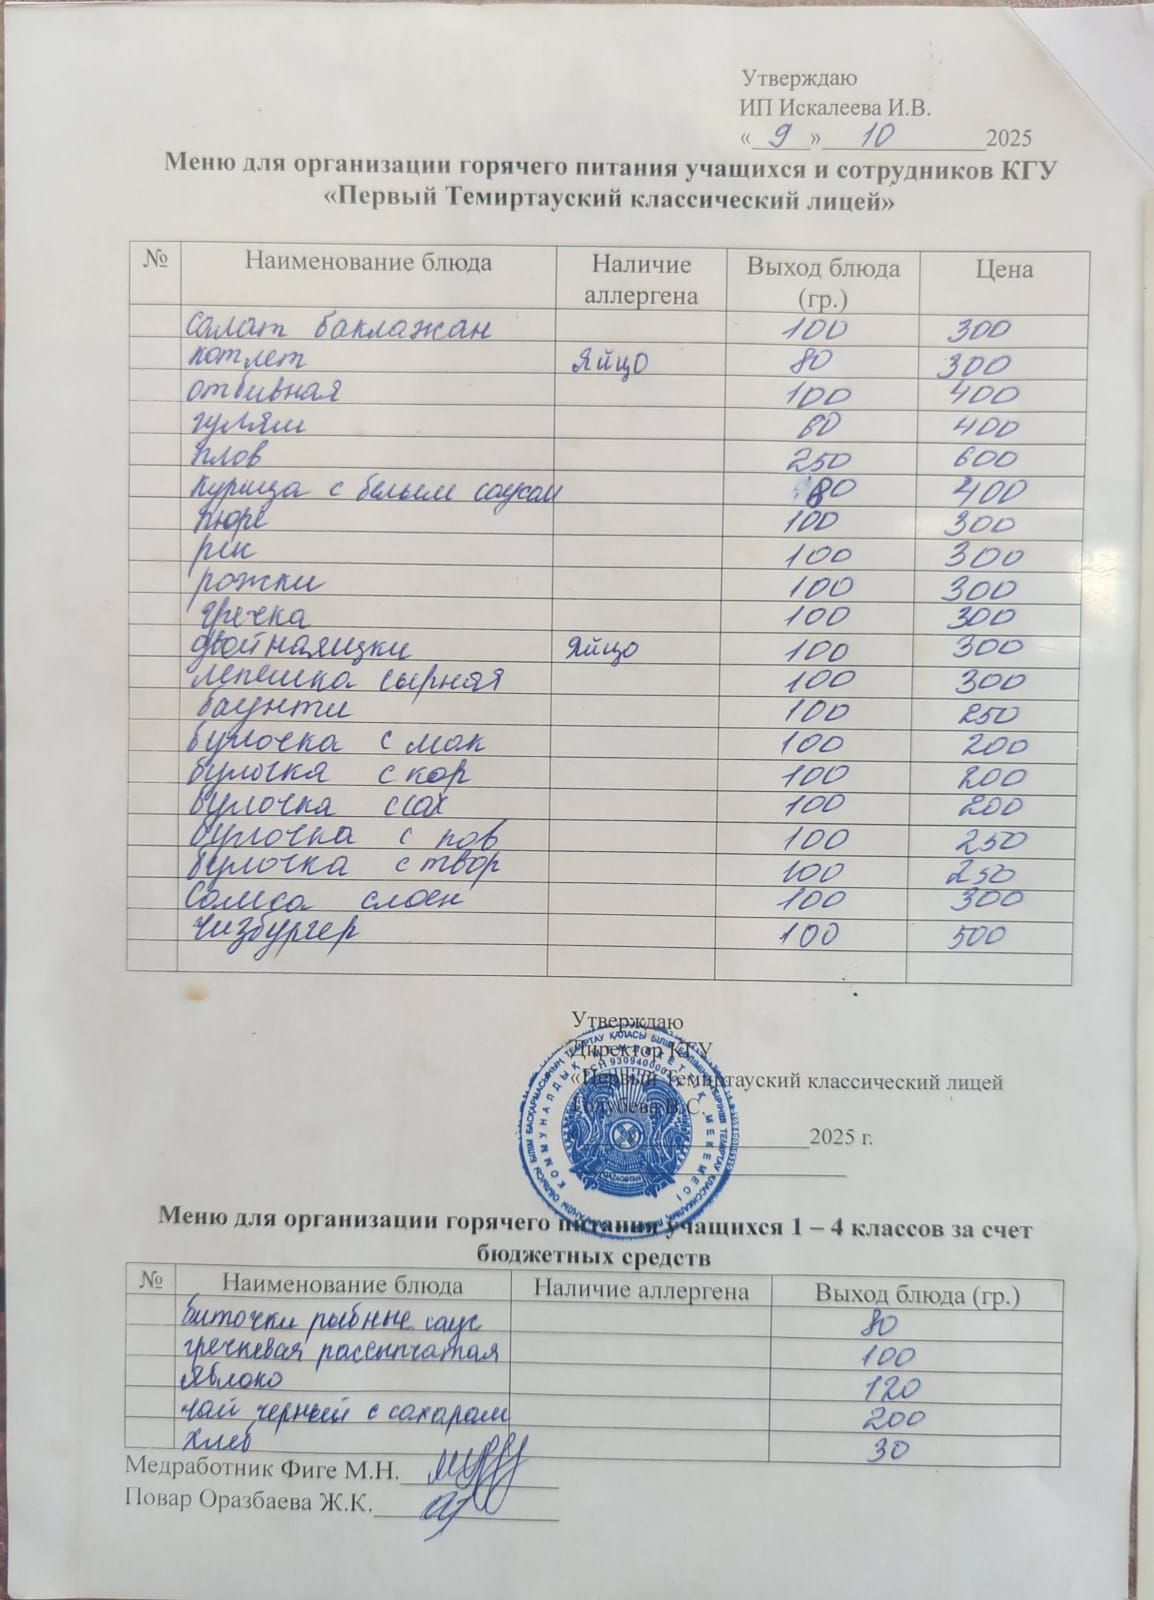 Утверждаю
ИП Искалеева И.В.
« 9 » 10 2025
Меню для организации горячего питания учащихся и сотрудников КГУ
«Первый Темиртауский классический лицей»
№ Наименование блюда Наличие аллергена Выход блюда (гр.) Цена
салат баклажан 100 300
котлет яйцо 80 300
отбивная 100 400
гуляш 80 400
плов 250 600
курица с белым соусом 80 400
пюре 100 300
рис 100 300
рожки 100 300
гречка 100 300
яйцо 100 300
лепешка сырная 100 300
баунти 100 250
булочка с мак 100 200
булочка с кор 100 200
булочка с сах 100 200
булочка с пов 100 250
булочка с твор 100 250
самса слоен 100 300
чизбургер 100 500
Утверждаю
Директор КГУ
«Первый Темиртауский классический лицей
Голубева В.С.
2025 г.
Меню для организации горячего питания учащихся 1 – 4 классов за счет
бюджетных средств
№ Наименование блюда Наличие аллергена Выход блюда (гр.)
биточки рыбные соус 80
гречневая рассыпчатая 100
яблоко 120
чай черный с сахаром 200
хлеб 30
Медработник Фиге М.Н.
Повар Оразбаева Ж.К.